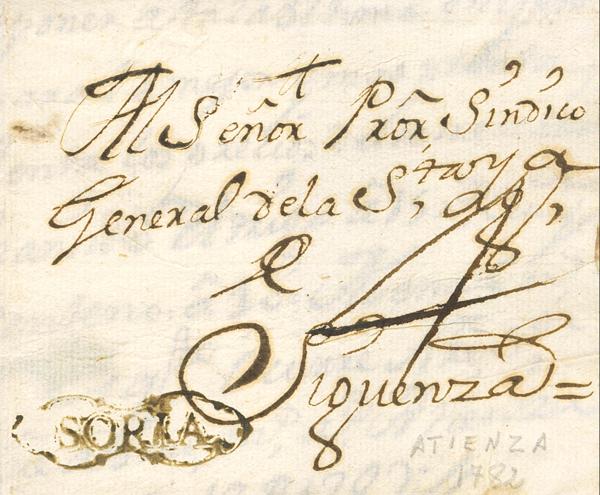 Al Señor Prõr Síndico
General de la S,
Siguenza =
SORIA
ATIENZA
1782